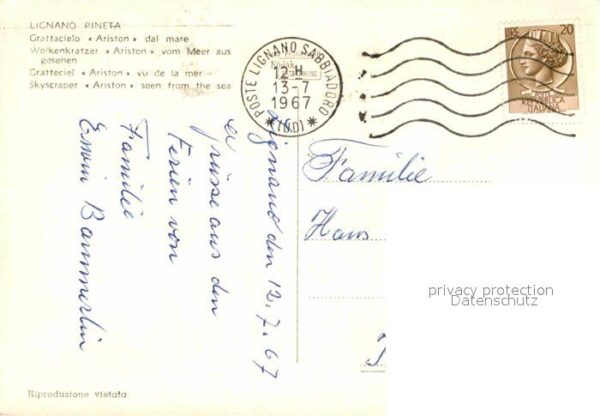 LIGNANO PINETA
Grattacielo « Ariston » dal mare
Wolkenkratzer « Ariston » vom Meer aus gesehen
Gratteciel « Ariston » vu de la mer
Skyscraper « Ariston » seen from the sea
POSTE LIGNANO SABBIADORO
12-H
13-7
1967
* (UD) *
LIRE 20
REPUBBLICA
ITALIANA
Lignano den 12.7.67
Grüsse aus den
Ferien von
Familie
Erwin
Familie
Hans
privacy protection
Datenschutz
Riproduzione vietata